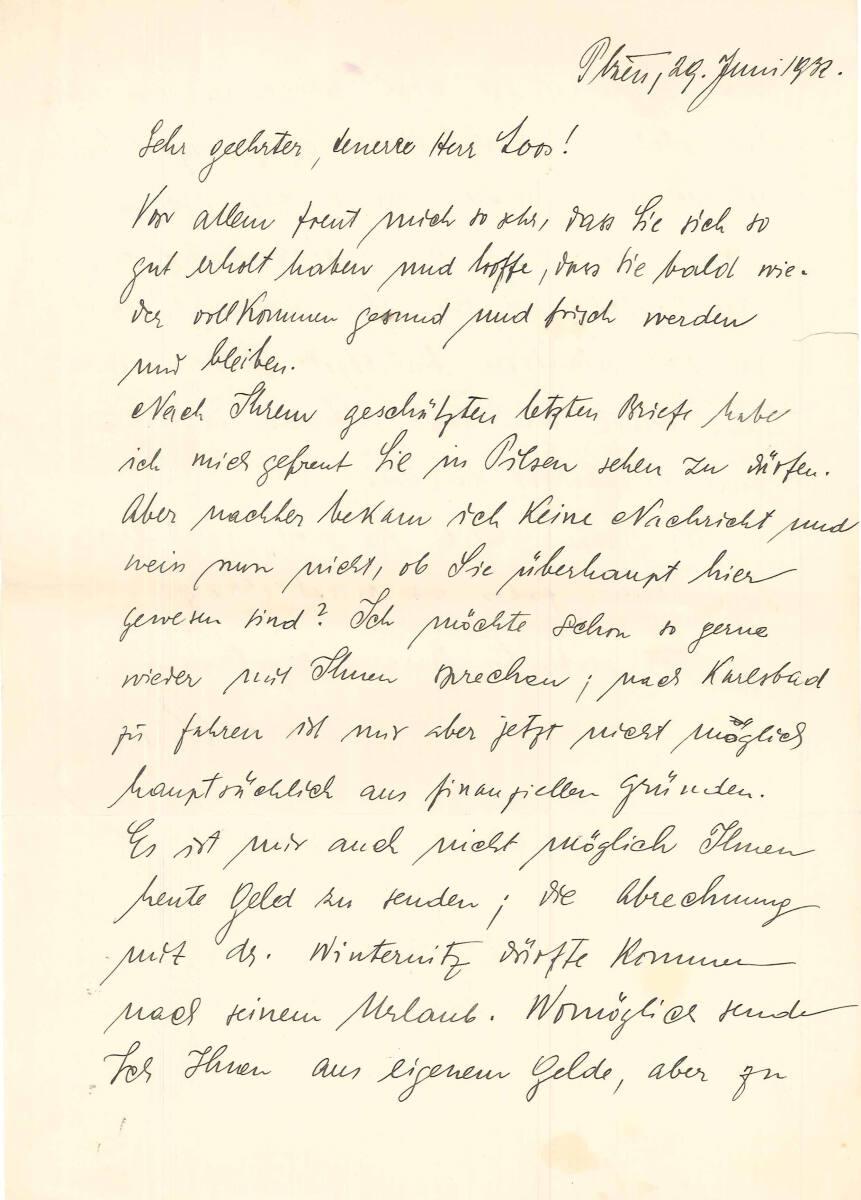 Plzeň, 29. Juni 1932.
Sehr geehrter, teuerer Herr Loos!
Vor allem freut mich so sehr, dass Sie sich so
gut erholt haben und hoffe, dass Sie bald wie-
der vollkommen gesund und frisch werden
und bleiben.
Nach Ihrem geschätzten letzten Briefe habe
ich mich gefreut Sie in Pilsen sehen zu dürfen.
Aber nachher bekam ich keine Nachricht und
weiss nun nicht, ob Sie überhaupt hier
gewesen sind? Ich möchte schon so gerne
wieder mit Ihnen sprechen; nach Karlsbad
zu fahren ist mir aber jetzt nicht möglich
hauptsächlich aus finanziellen Gründen.
Es ist mir auch nicht möglich Ihnen
heute Geld zu senden; die Abrechnung
mit dr. Winternitz dürfte kommen
nach seinem Urlaub. Womöglich sende
Ich Ihnen aus eigenem Gelde, aber zu